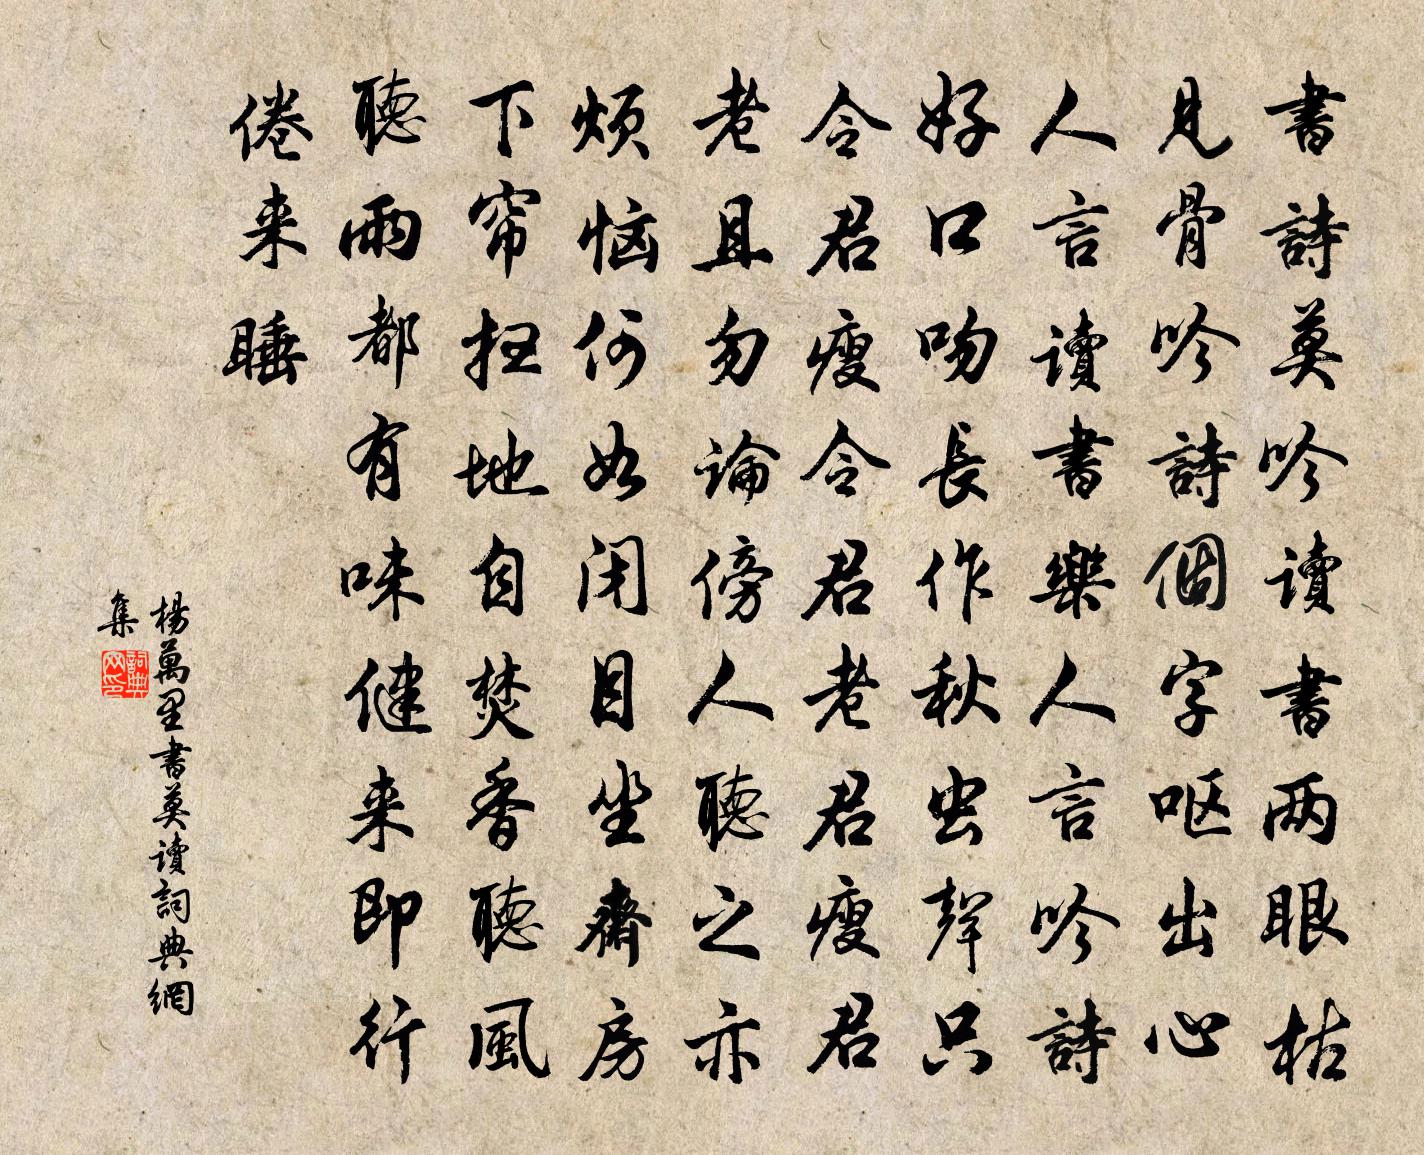 書詩莫吟讀書两眼枯
見骨吟詩個字呕出心
人言讀書樂人言吟詩
好口吻長作秋虫聲只
令君瘦令君老君瘦君
老且勿論傍人聽之亦
烦恼何如闭目坐齋房
下帘扫地自焚香聽風
聽雨都有味健来即行
倦来睡
楊萬里書莫讀詞典網
集
詞典
网印